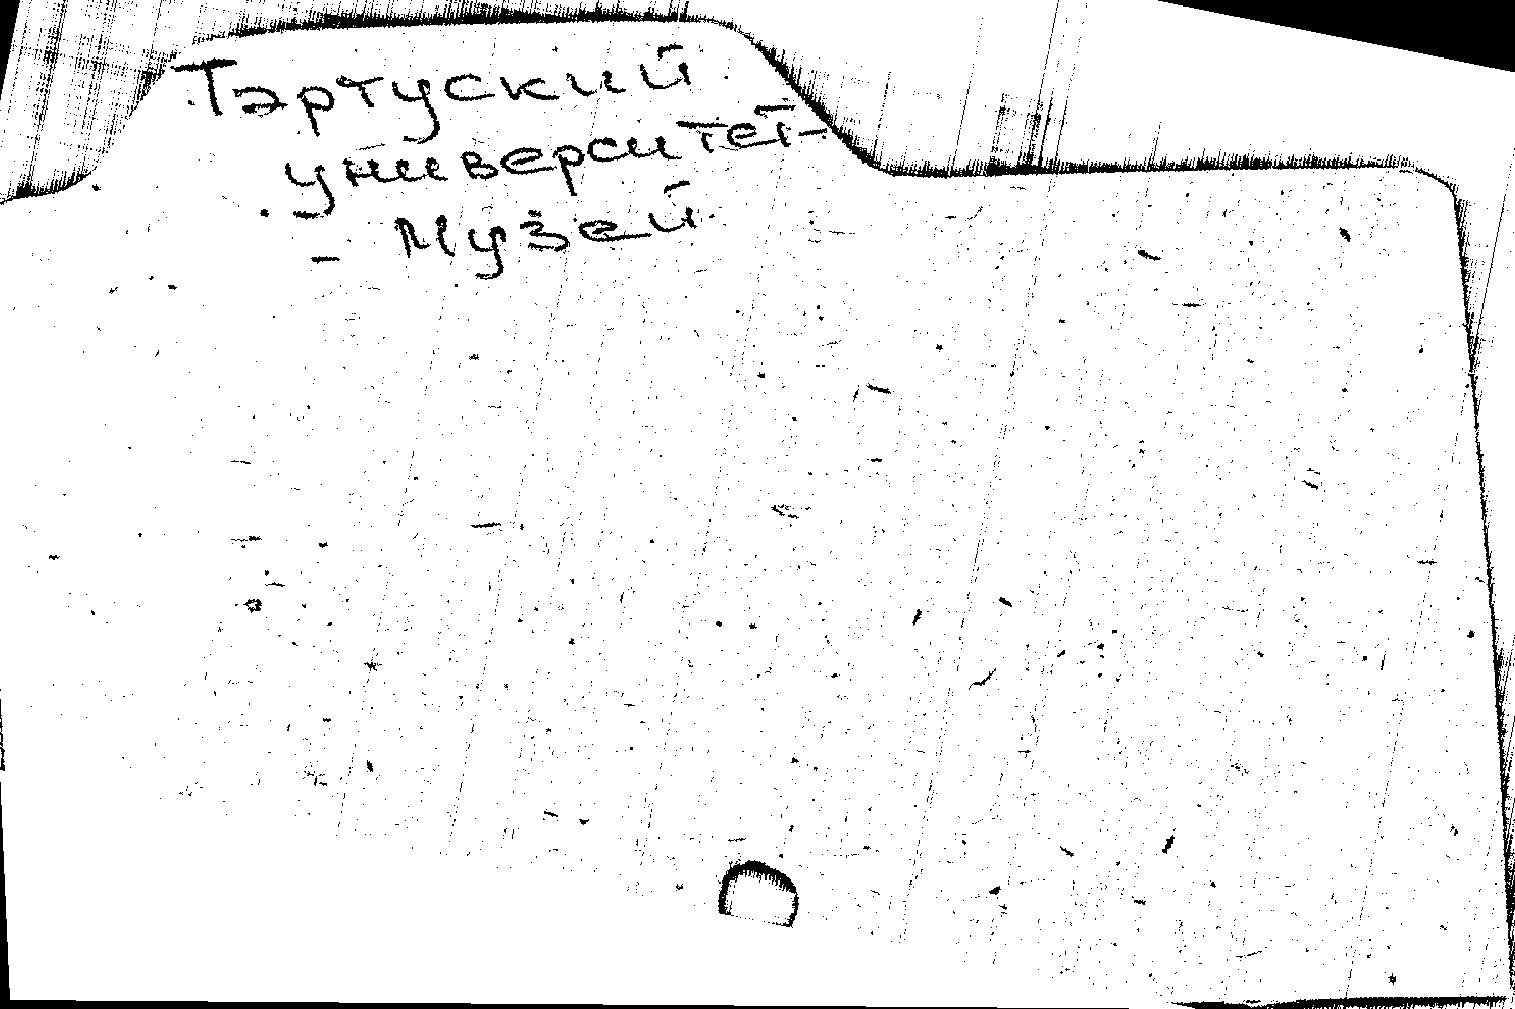 Тартуский
университет-
- Музей